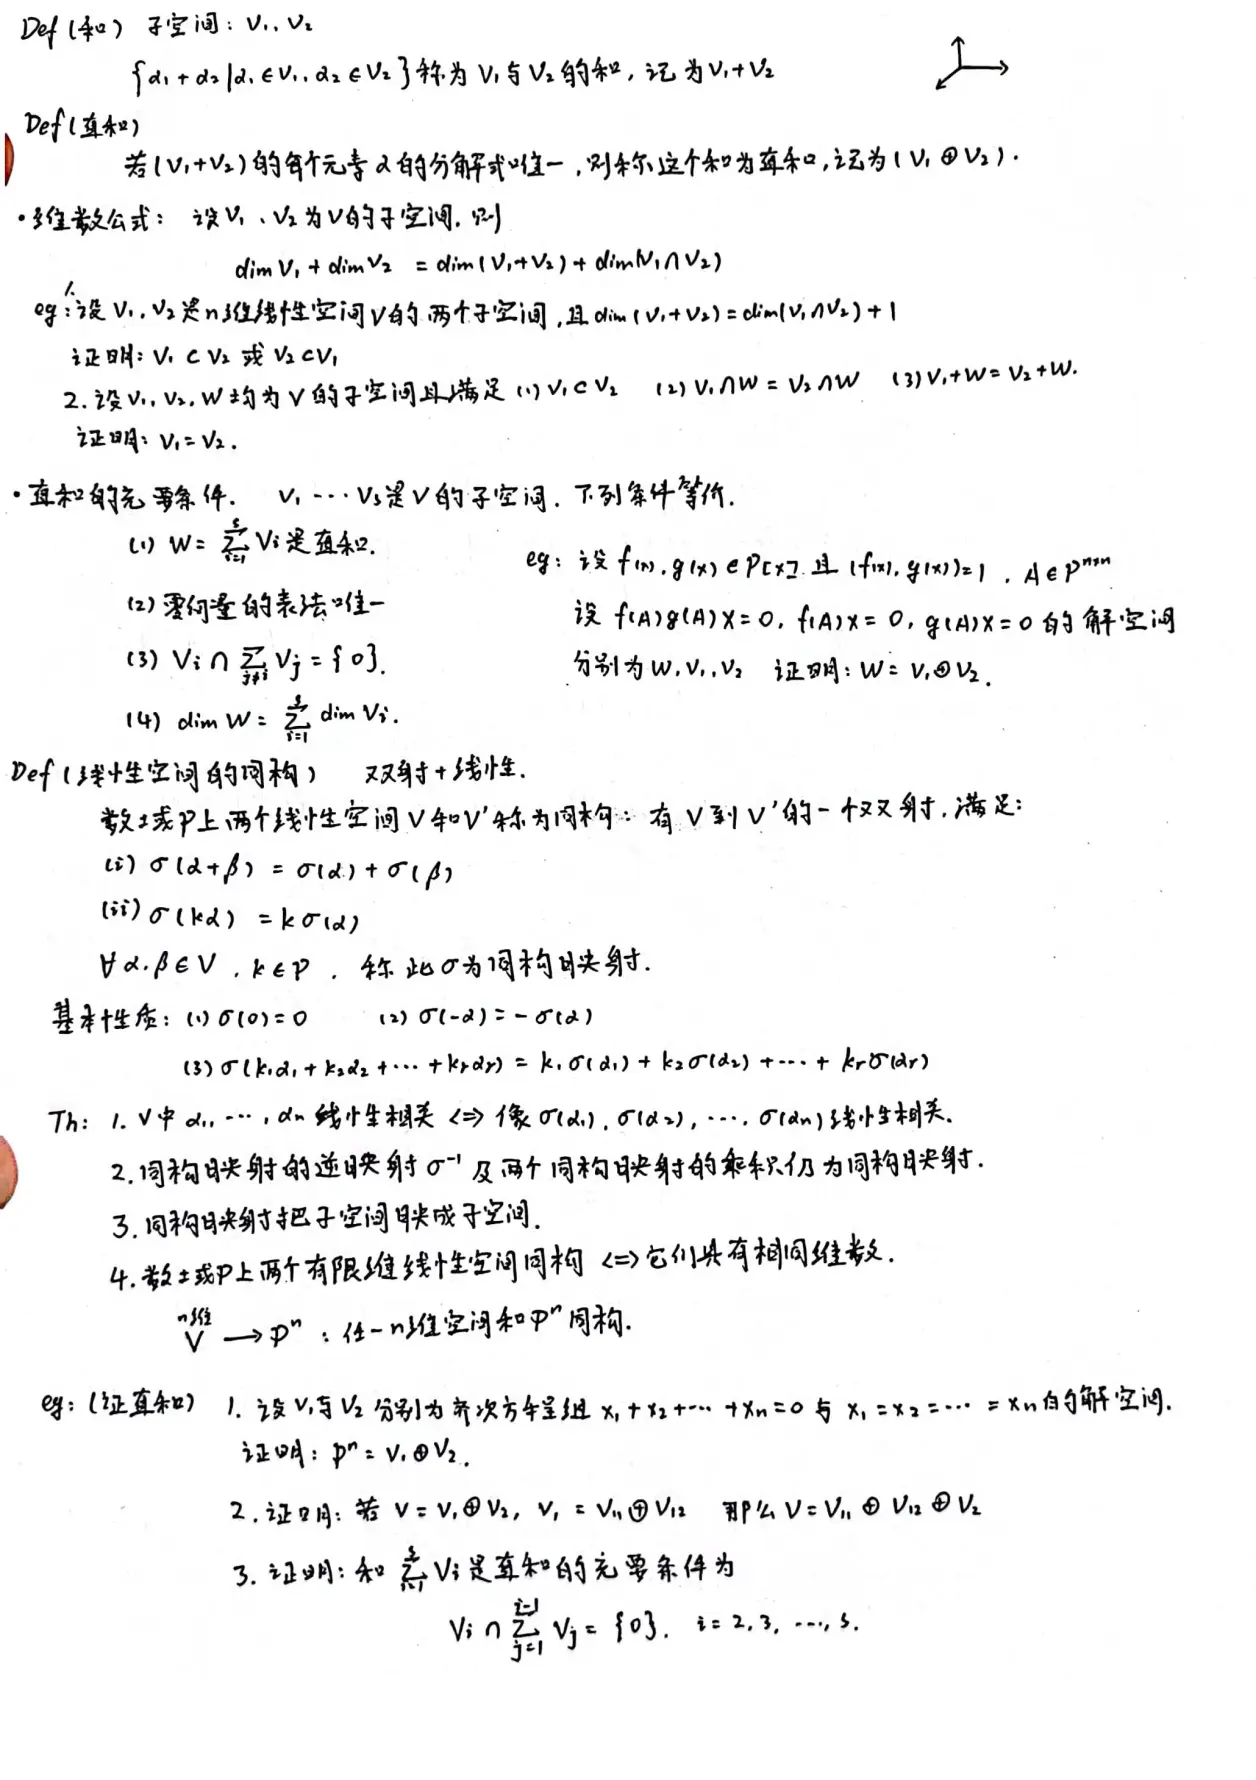 Def (和) 子空间: V₁, V₂
{α₁+α₂|α₁∈V₁, α₂∈V₂}称为V₁与V₂的和, 记为V₁+V₂
Def (直和)
若(V₁+V₂)的每个元素α的分解式唯一, 则称这个和为直和, 记为(V₁⊕V₂).
·维数公式: 设V₁、V₂为V的子空间, 则
dim V₁ + dim V₂ = dim(V₁+V₂) + dim(V₁∩V₂)
eg: 1. 设V₁, V₂是n维线性空间V的两个子空间, 且dim(V₁+V₂)=dim(V₁∩V₂)+1
证明: V₁⊂V₂ 或 V₂⊂V₁
2. 设V₁, V₂, W均为V的子空间且满足 (1) V₁⊂V₂ (2) V₁∩W = V₂∩W (3) V₁+W = V₂+W.
证明: V₁=V₂.
·直和的充要条件. V₁ ··· Vs是V的子空间, 下列条件等价.
(1) W = ∑_{i=1}^{s} Vi是直和.
(2) 零向量的表法唯一
(3) Vi ∩ ∑_{j≠i} Vj = {0}.
(4) dim W = ∑_{i=1}^{s} dim Vi.
eg: 设f(x), g(x)∈P[x] 且 (f(x), g(x))=1, A∈P^{n×n}
设f(A)g(A)X=0, f(A)X=0, g(A)X=0的解空间
分别为W, V₁, V₂ 证明: W = V₁⊕V₂.
Def (线性空间的同构) 双射+线性.
数域P上两个线性空间V和V′称为同构: 有V到V′的一个双射, 满足:
(i) σ(α+β) = σ(α) + σ(β)
(ii) σ(kα) = kσ(α)
∀α, β∈V, k∈P, 称此σ为同构映射.
基本性质: (1) σ(0)=0 (2) σ(-α) = -σ(α)
(3) σ(k₁α₁ + k₂α₂ + ··· + krαr) = k₁σ(α₁) + k₂σ(α₂) + ··· + krσ(αr)
Th: 1. V中 α₁, ···, αn 线性相关 ⇔ 像σ(α₁), σ(α₂), ···, σ(αn)线性相关.
2. 同构映射的逆映射σ⁻¹及两个同构映射的乘积仍为同构映射.
3. 同构映射把子空间映成子空间.
4. 数域P上两个有限维线性空间同构 ⇔ 它们具有相同维数.
n维
V ⟶ Pⁿ: 任一n维空间和Pⁿ同构.
eg: (证直和) 1. 设V₁与V₂分别为齐次方程组 x₁+x₂+···+xn=0 与 x₁=x₂=···=xn的解空间.
证明: Pⁿ = V₁⊕V₂.
2. 证明: 若 V = V₁⊕V₂, V₁ = V₁₁⊕V₁₂ 那么 V = V₁₁⊕V₁₂⊕V₂
3. 证明: 和 ∑_{i=1}^{s} Vi是直和的充要条件为
Vi ∩ ∑_{j=1}^{i-1} Vj = {0}. i = 2, 3, ···, s.